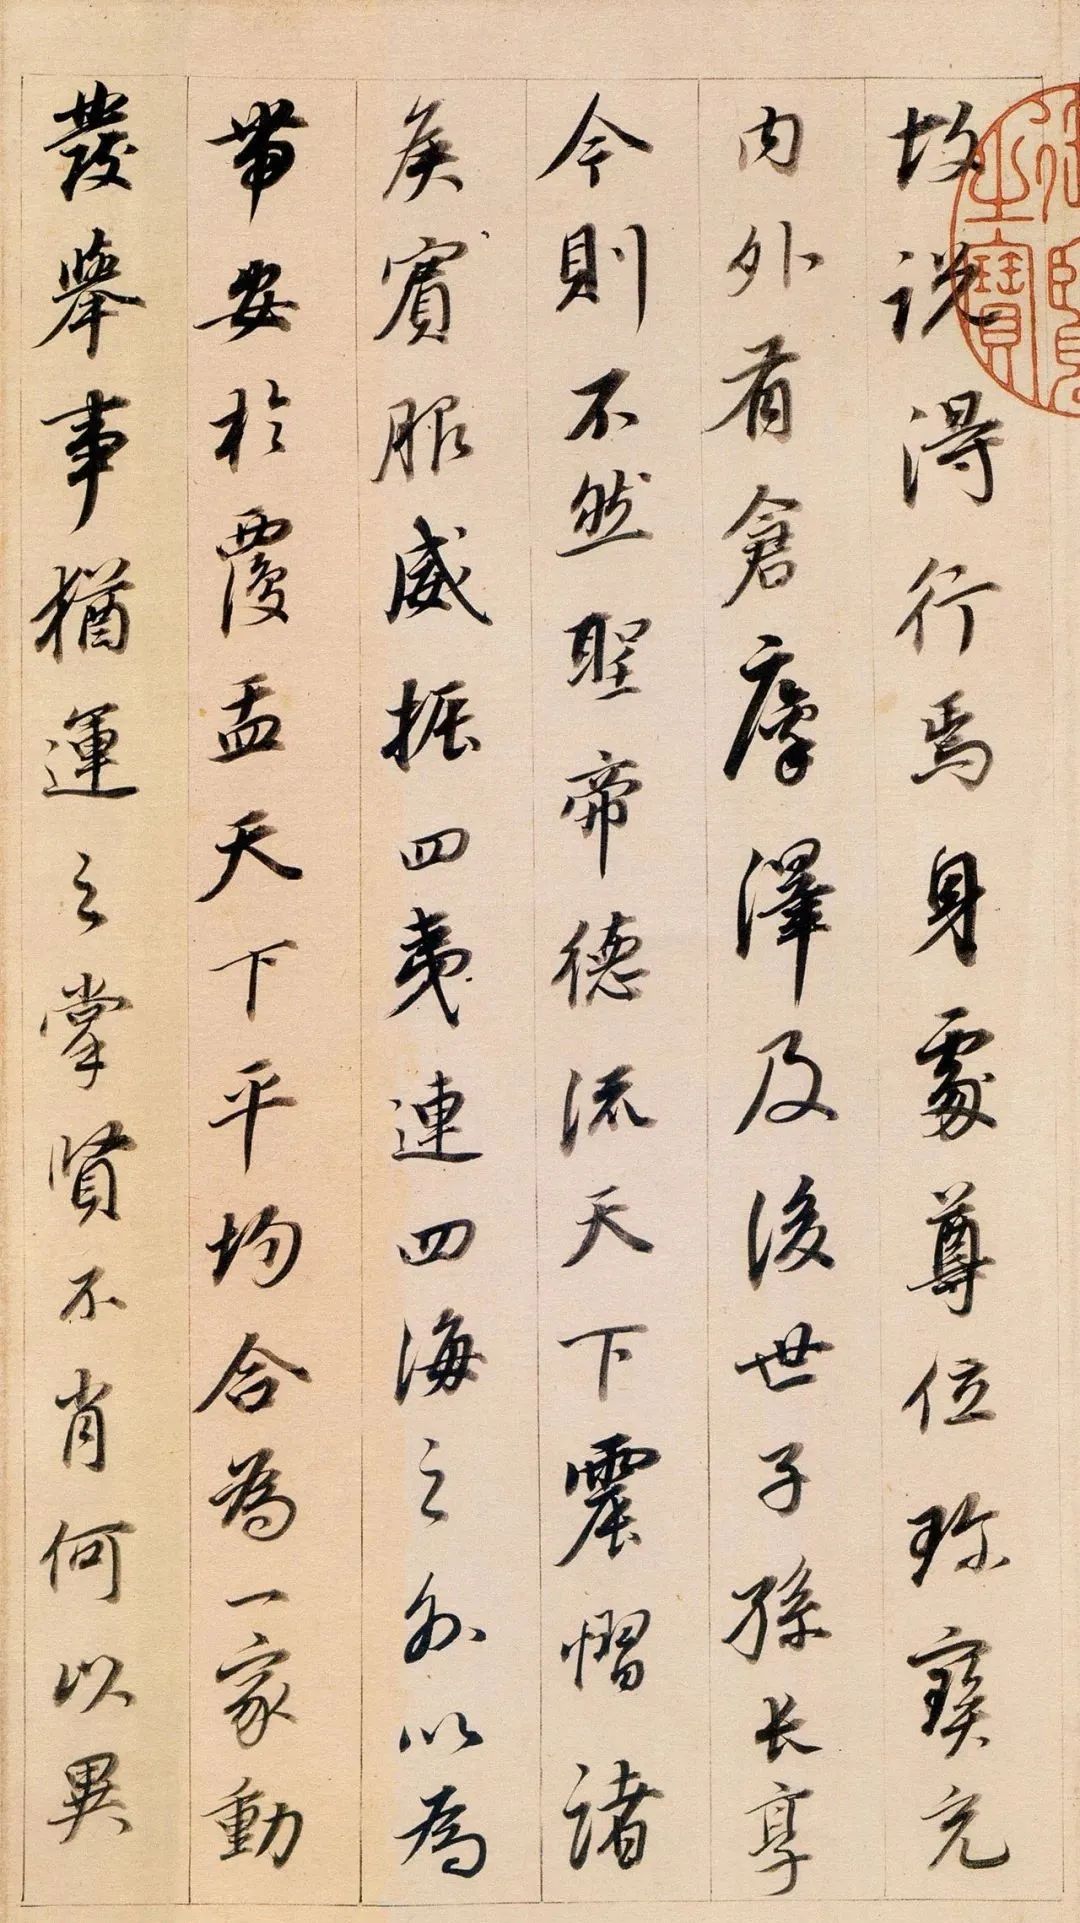 故說得行焉身處尊位珍寶充
內外有倉廩澤及後世子孫長享
今則不然聖帝德流天下震慴諸
侯賓服威振四夷連四海之外以為
帶安於覆盂天下平均合為一家動
發舉事猶運之掌賢不肖何以異
御覽
之寶